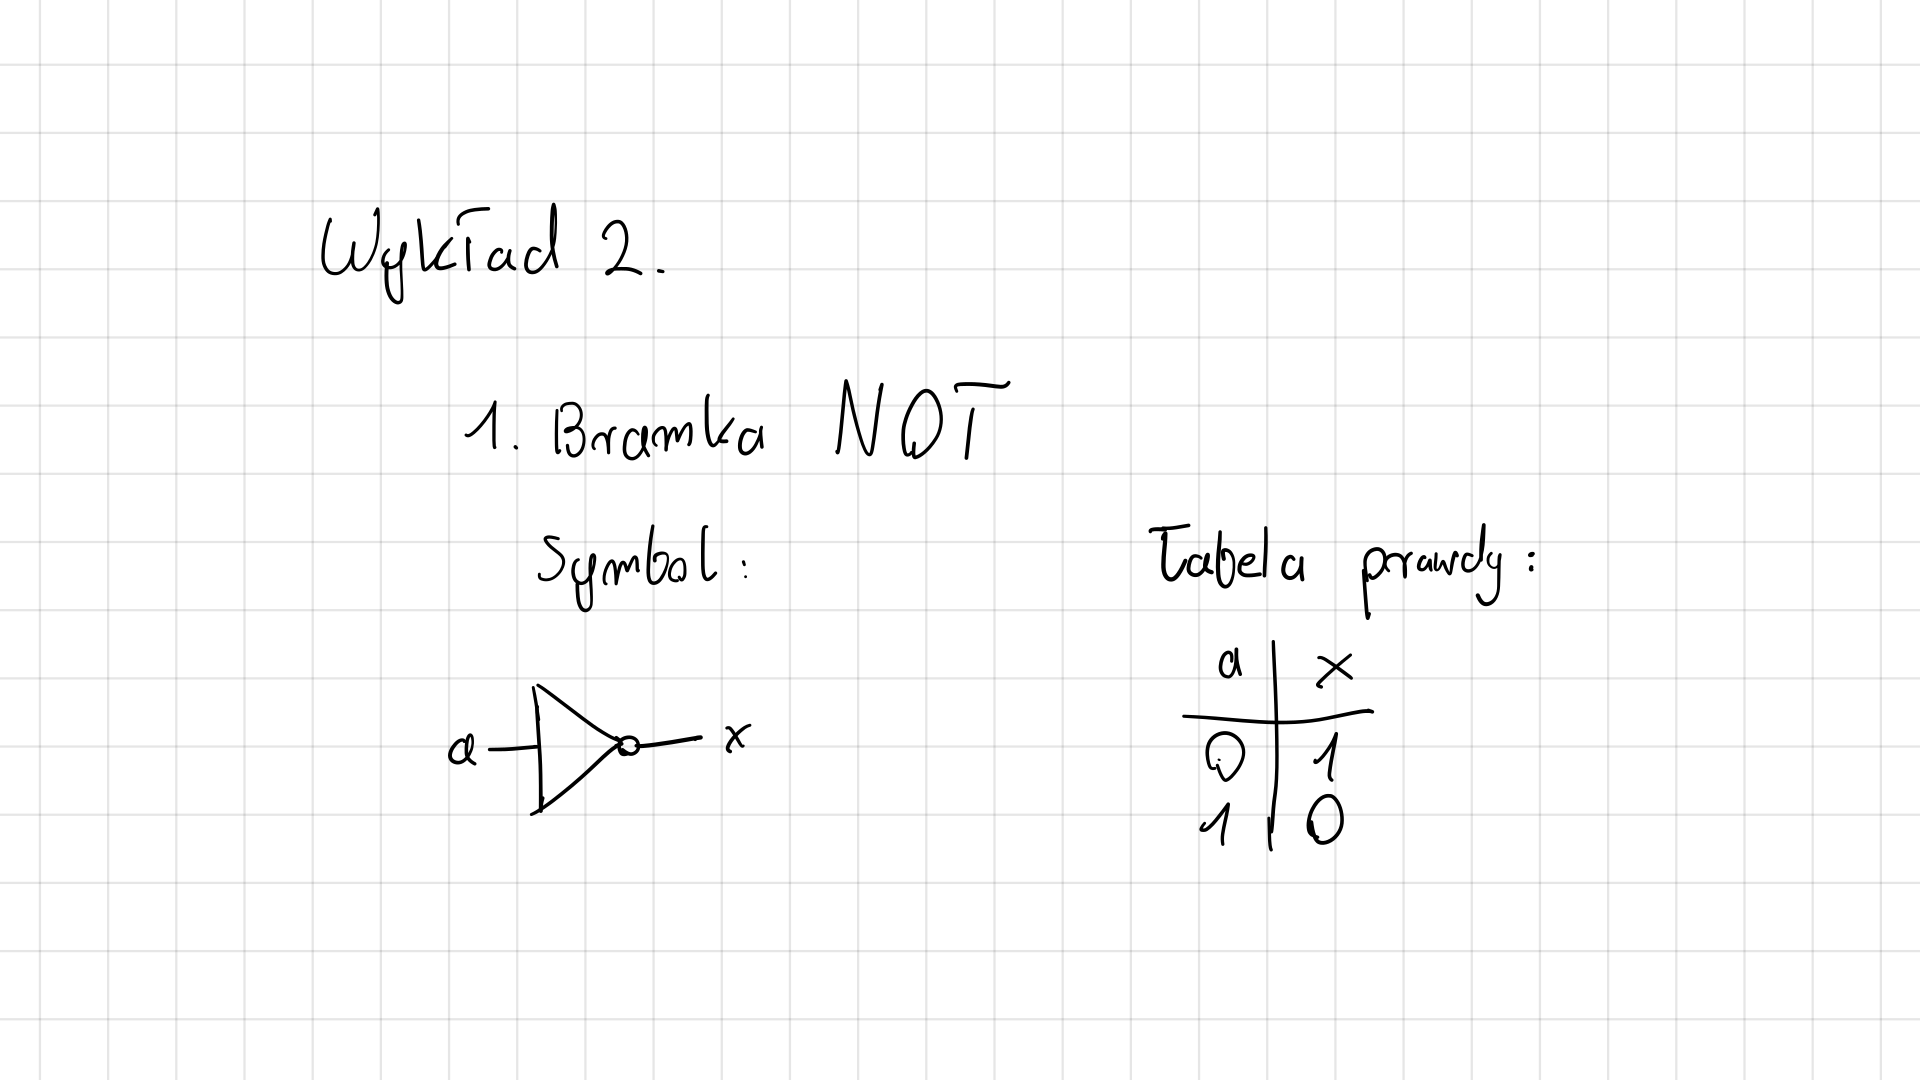 Wykład 2.
1. Bramka NOT
Symbol:
Tabela prawdy:
a x
a x
0 1
1 0